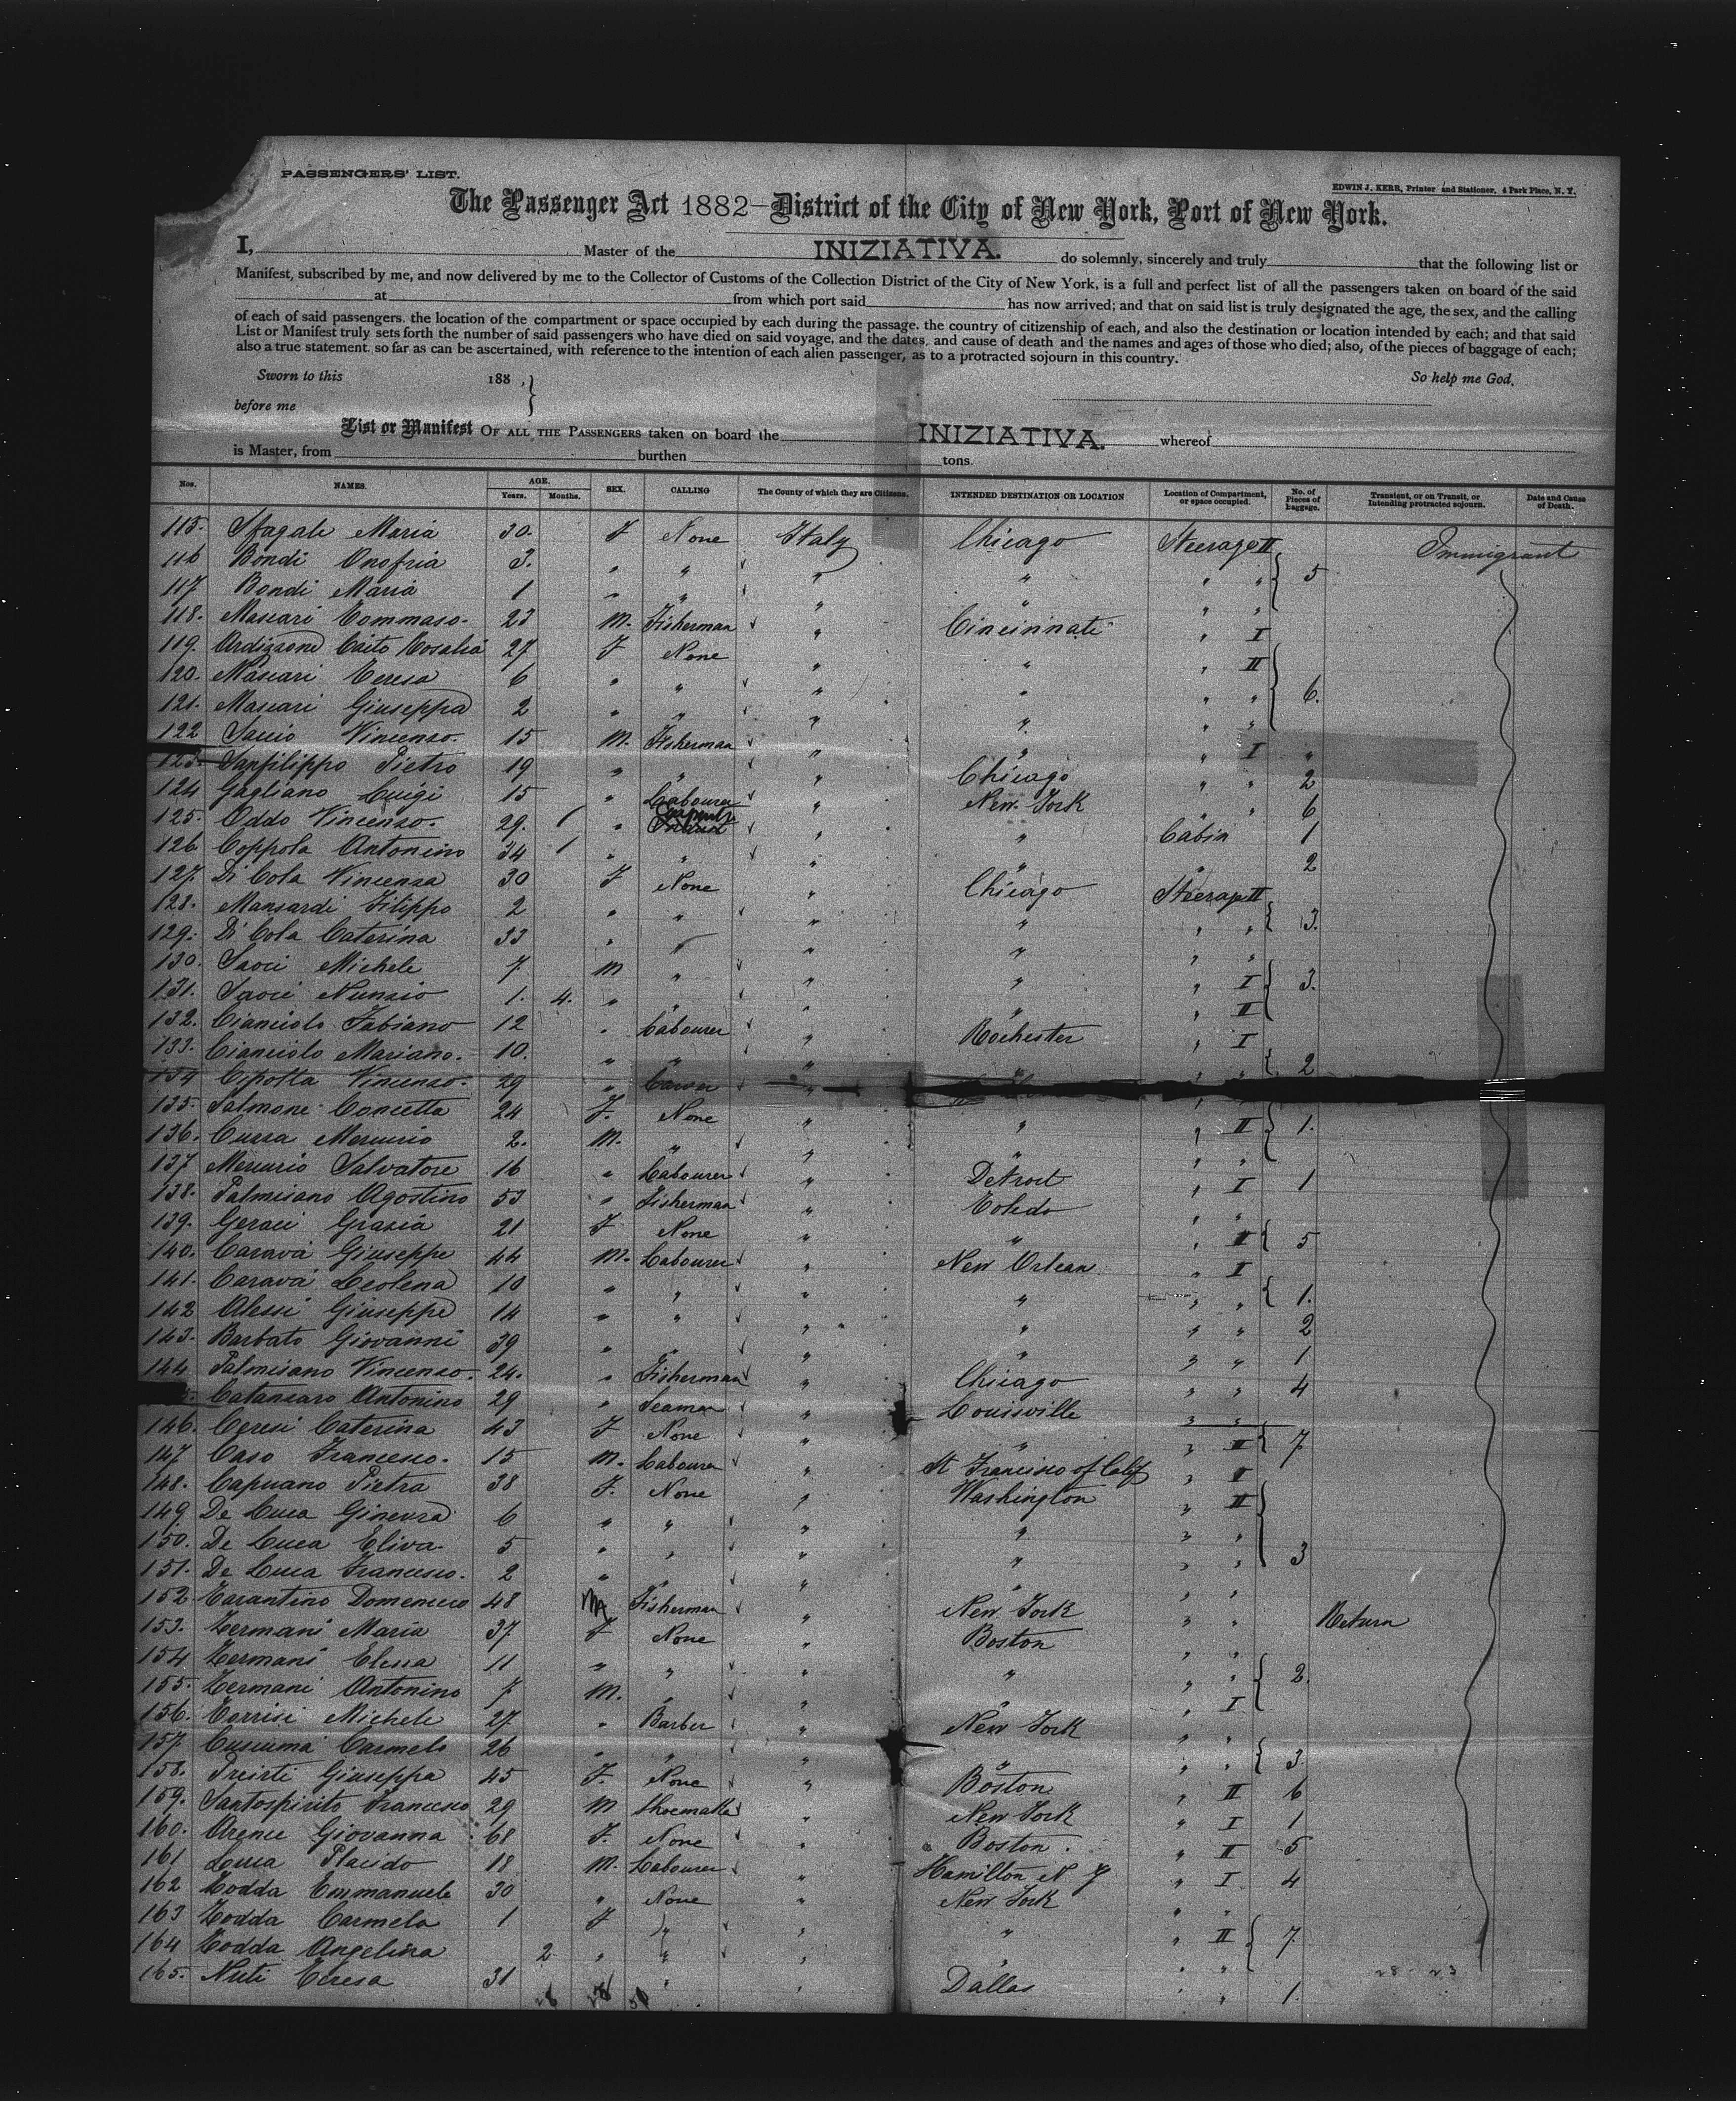 PASSENGERS' LIST.
EDWIN J. KERR, Printer and Stationer, 4 Park Place, N. Y.
The Passenger Act 1882—District of the City of New York, Port of New York.
I, Master of the INIZIATIVA. do solemnly, sincerely and truly that the following list or
Manifest, subscribed by me, and now delivered by me to the Collector of Customs of the Collection District of the City of New York, is a full and perfect list of all the passengers taken on board of the said
at from which port said has now arrived; and that on said list is truly designated the age, the sex, and the calling
of each of said passengers. the location of the compartment or space occupied by each during the passage. the country of citizenship of each, and also the destination or location intended by each; and that said
List or Manifest truly sets forth the number of said passengers who have died on said voyage, and the dates, and cause of death and the names and ages of those who died; also, of the pieces of baggage of each;
also a true statement. so far as can be ascertained, with reference to the intention of each alien passenger, as to a protracted sojourn in this country.
Sworn to this 188 , } So help me God.
before me
List or Manifest OF ALL THE PASSENGERS taken on board the INIZIATIVA. whereof
is Master, from burthen tons.
Nos. NAMES. AGE. Years. Months. SEX. CALLING The County of which they are Citizens. INTENDED DESTINATION OR LOCATION Location of Compartment, or space occupied. No. of Pieces of baggage. Transient, or on Transit, or Intending protracted sojourn. Date and Cause of Death.
115. Sfagale Maria 30. F None Italy Chicago Steerage II Immigrant
116 Bondi Onofria 3. " " " " " " 5
117. Bondi Maria 1 " " " " " "
118. Mascari Tommaso. 23 M. Fisherman " Cincinnati " I
119. Ardizzone Caito Rosalia 27 F None " " " II
120. Mascari Teresa 6 " " " " " " 6.
121. Mascari Giuseppa 2 " " " " " "
122 Saccio Vincenzo. 15 M. Fisherman " " " I "
123. Sanfilippo Pietro 19 " " " Chicago " " 2
124 Gagliano Luigi 15 " Labourer " New York " " 6
125. Oddo Vincenzo. 29. " Carpenter " " Cabin 1
126 Coppola Antonino 34 " " " " " 2
127. Di Cola Vincenza 30 F None " Chicago Steerage II
128. Mansardi Filippo 2 " " " " " " 3.
129. Di Cola Caterina 33 " " " " " "
130. Saoci Michele 7. M " " " " I 3.
131. Saoci Nunzio 1. 4. " " " " " II
132. Cianciolo Fabiano 12 " Labourer " Rochester " I
133. Cianciolo Mariano. 10. " " " " " " 2
134 Cipolla Vincenzo. 29 " Carver "
135. Salmone Concetta 24 F. None " " " II 1.
136. Mercurio 2. M. " " " " "
137 Mercurio Salvatore 16 " Labourer " Detroit " I 1
138. Palmisano Agostino 53 " Fisherman " Toledo " "
139. Geraci Grazia 21 F None " " " II 5
140. Caravà Giuseppe 44 M. Labourer " New Orlean " I
141. Caravà Leolena 10 " " " " " " 1.
142 Alessi Giuseppe 14 " " " " " " 2
143. Barbato Giovanni 39 " " " " " " 1
144 Palmisano Vincenzo. 24. " Fisherman " Chicago " " 4
Catanzaro Antonino 29 " Seaman " Louisville " "
146. Ceresi Caterina 43 F None " " " II 7
147 Caso Francesco. 15 M. Labourer " St Francisco of Calif " I
148. Capuano Pietra 38 F. None " Washington " II
149. De Luca Ginevra 6 " " " " " "
150. De Luca Eliva 5 " " " " " " 3
151. De Luca Francesco. 2 " " " " " "
152 Tarantino Domenico 48 M Fisherman " New York " " Return
153. Zermani Maria 37 F None " Boston " "
154 Zermani Elena 11 " " " " " " 2.
155. Zermani Antonino 7. M. " " " " I
156. Torrisi Michele 27 " Barber " New York " "
157. Cusumà Carmelo 26 " " " " " " 3
158. Giuseppa 45 F. None " Boston " II 6
159. Santospirito Francesco 29 M Shoemaker " New York " I 1
160. Arena Giovanna 68 F. None " Boston. " II 5
161 Luca Placido 18 M. Labourer " Hamilton N Y " I 4
162 Zodda Emmanuele 30 " None " New York " "
163 Zodda Carmela 1 F " " " " II 7
164 Zodda Angelina 2 " " " " " "
165. Nuti Teresa 31 " " Dallas " " 1.
28 - 23